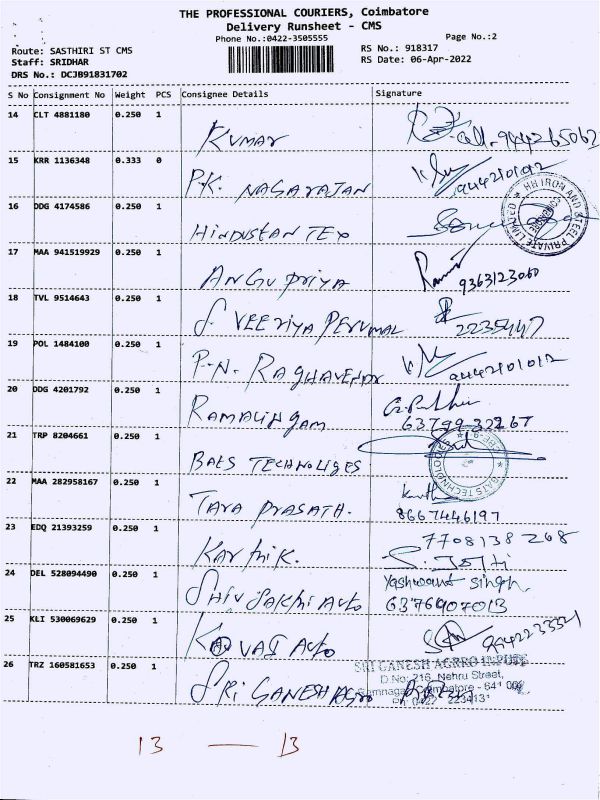 THE PROFESSIONAL COURIERS, Coimbatore
Delivery Runsheet - CMS
Phone No.:0422-3505555
Page No.:2
Route: SASTHIRI ST CMS
RS No.: 918317
Staff: SRIDHAR
RS Date: 06-Apr-2022
DRS No.: DCJB91831702
S No Consignment No Weight PCS Consignee Details Signature
14 CLT 4881180 0.250 1
KUMAR
15 KRR 1136348 0.333 0
P.K. NAGARAJAN
9442101012
16 DDG 4174586 0.250 1
HINDUSTAN TEX
HH IRON AND STEEL PRIVATE LIMITED
17 MAA 941519929 0.250 1
ANGU PRIYA
9363123060
18 TVL 9514643 0.250 1
S. VEERIYA PERUMAL
2235447
19 POL 1484100 0.250 1
P.N. RAGHAVENDR
9442101012
20 DDG 4201792 0.250 1
RAMALINGAM
63799 32267
21 TRP 8204661 0.250 1
BAES TECHNOLIGES
22 MAA 282958167 0.250 1
TARA PRASATH.
8667446197
23 EDQ 21393259 0.250 1
KARTHIK.
7708138268
S. Jothi
24 DEL 528094490 0.250 1
SHIV SAKTHI AUTO
Yashwant Singh.
6376907013
25 KLI 530069629 0.250 1
AUTO
26 TRZ 160581653 0.250 1
SRI GANESH AGRO
SRI GANESH AGRRO INPUTS
D.No: 216, Nehru Street,
Coimbatore - 641
13 — 13